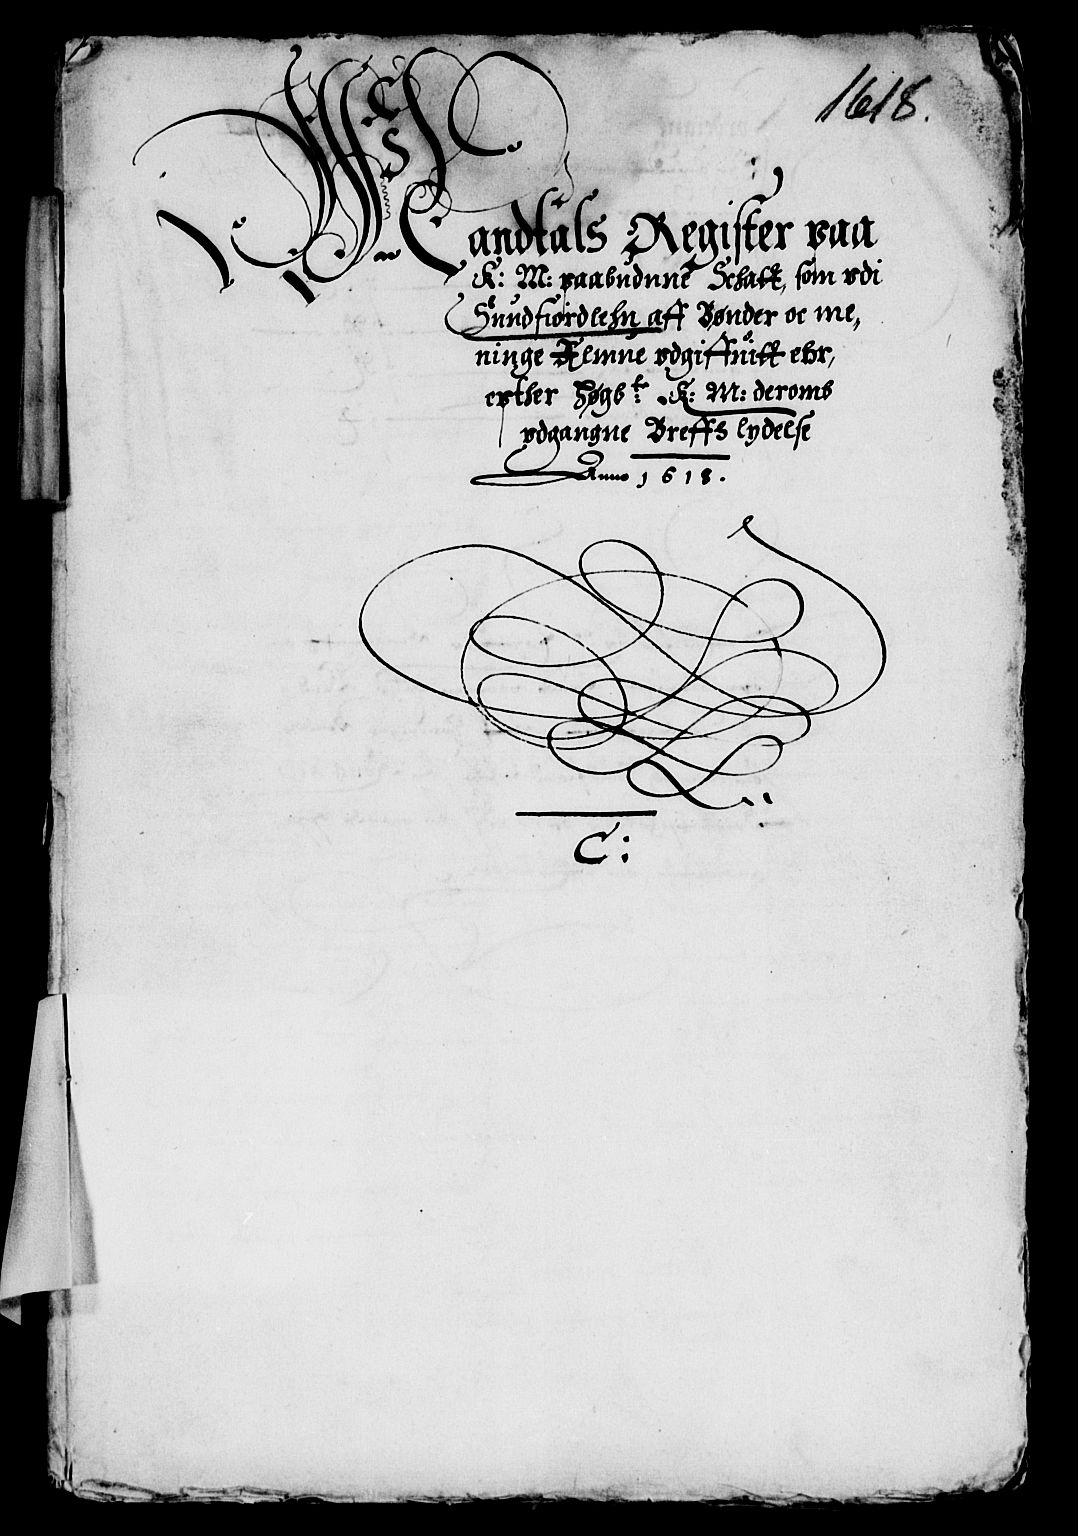 1618.
Mandtals Register paa
K: M: paabudnne Schatt, som vdi
Sundfiordlehn aff Bønder oc me,
ninge Almue vdgiffuitt ehr,
epther høgb.te K: M: deroms
vdgangne Breffs lydelse
Anno 1618.
C: